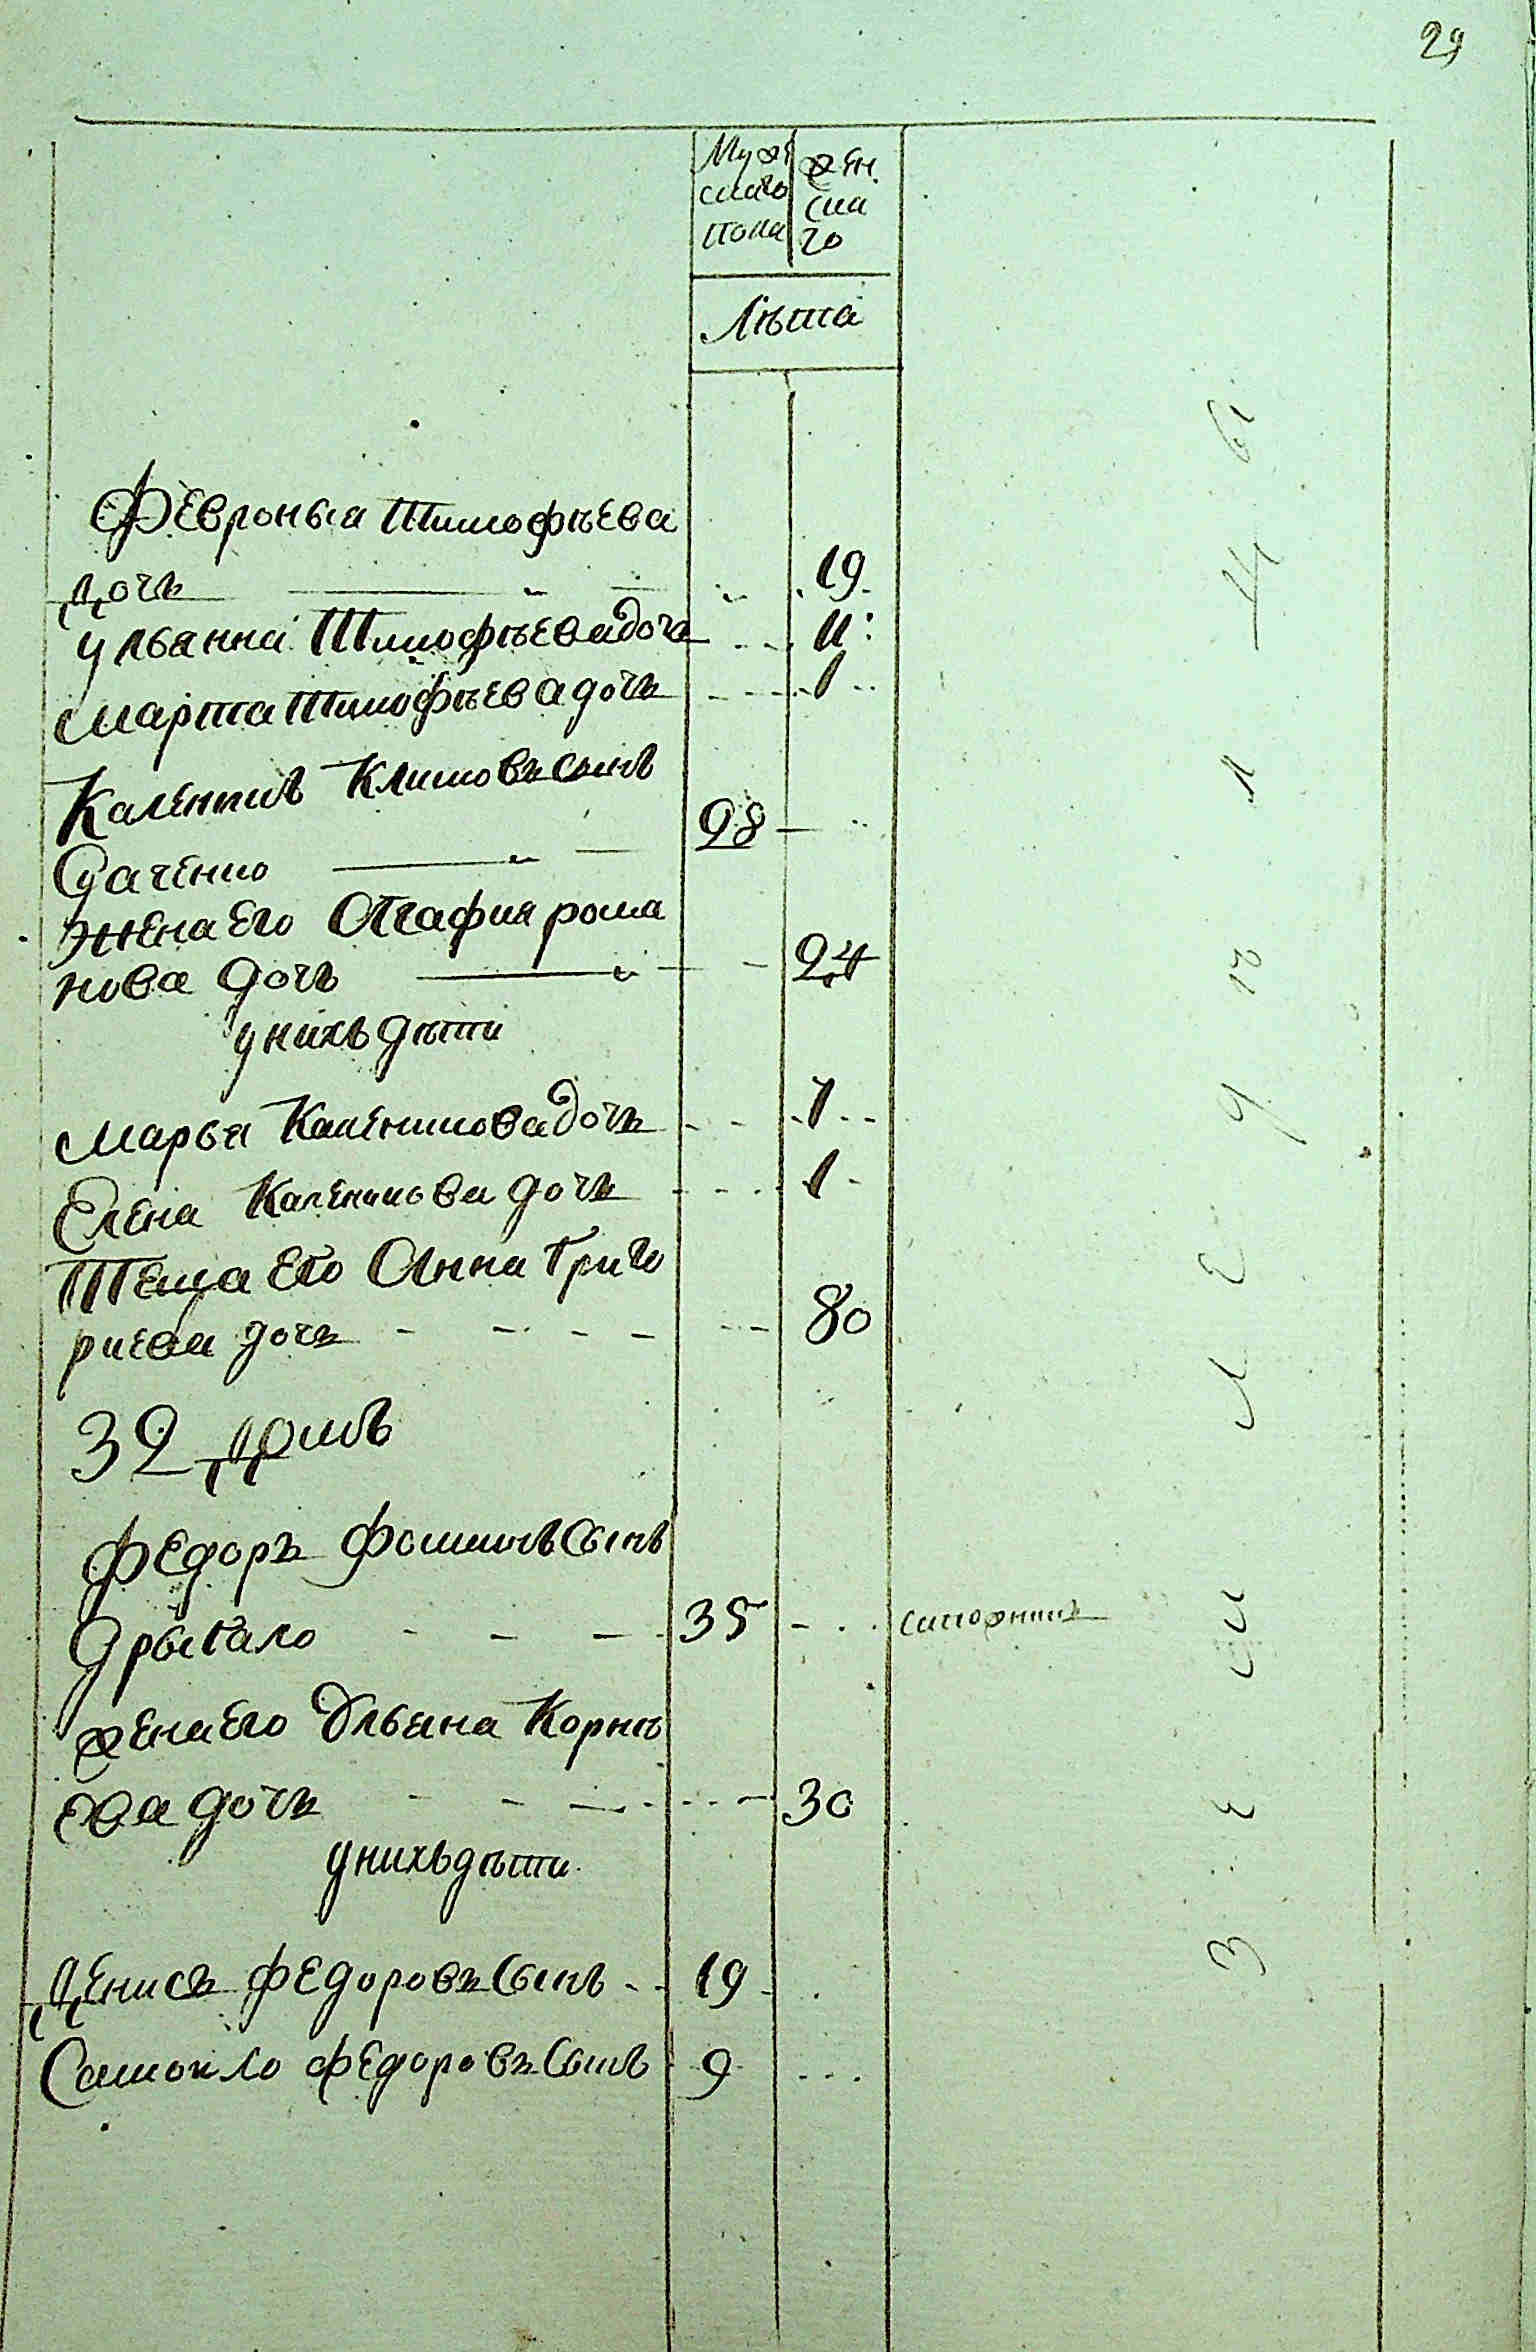 29
Муже
скаго
пола
жен
ска
го
Лѣта
Февроныа Тимофѣева
дочъ 19
ульянна Тимофѣева дочъ 11
Марта Тимофѣева дочъ 1
Каленикъ Климовъ сынъ
Суаченко 28
жена его Агафия рома
нова дочъ 24
у нихъ дѣти
Марья Каленикова дочъ 7
Елена Каленикова дочъ 1
Теща его Анна Григо
риева дочъ 80
32 домъ
Федоръ Фоминъ сынъ
Дрыгало 35
жена его Ульяна Корнѣ
ева дочъ 30
у нихъ дѣти
Денисъ Федоровъ сынъ 19
Самойло Федоровъ сынъ 9